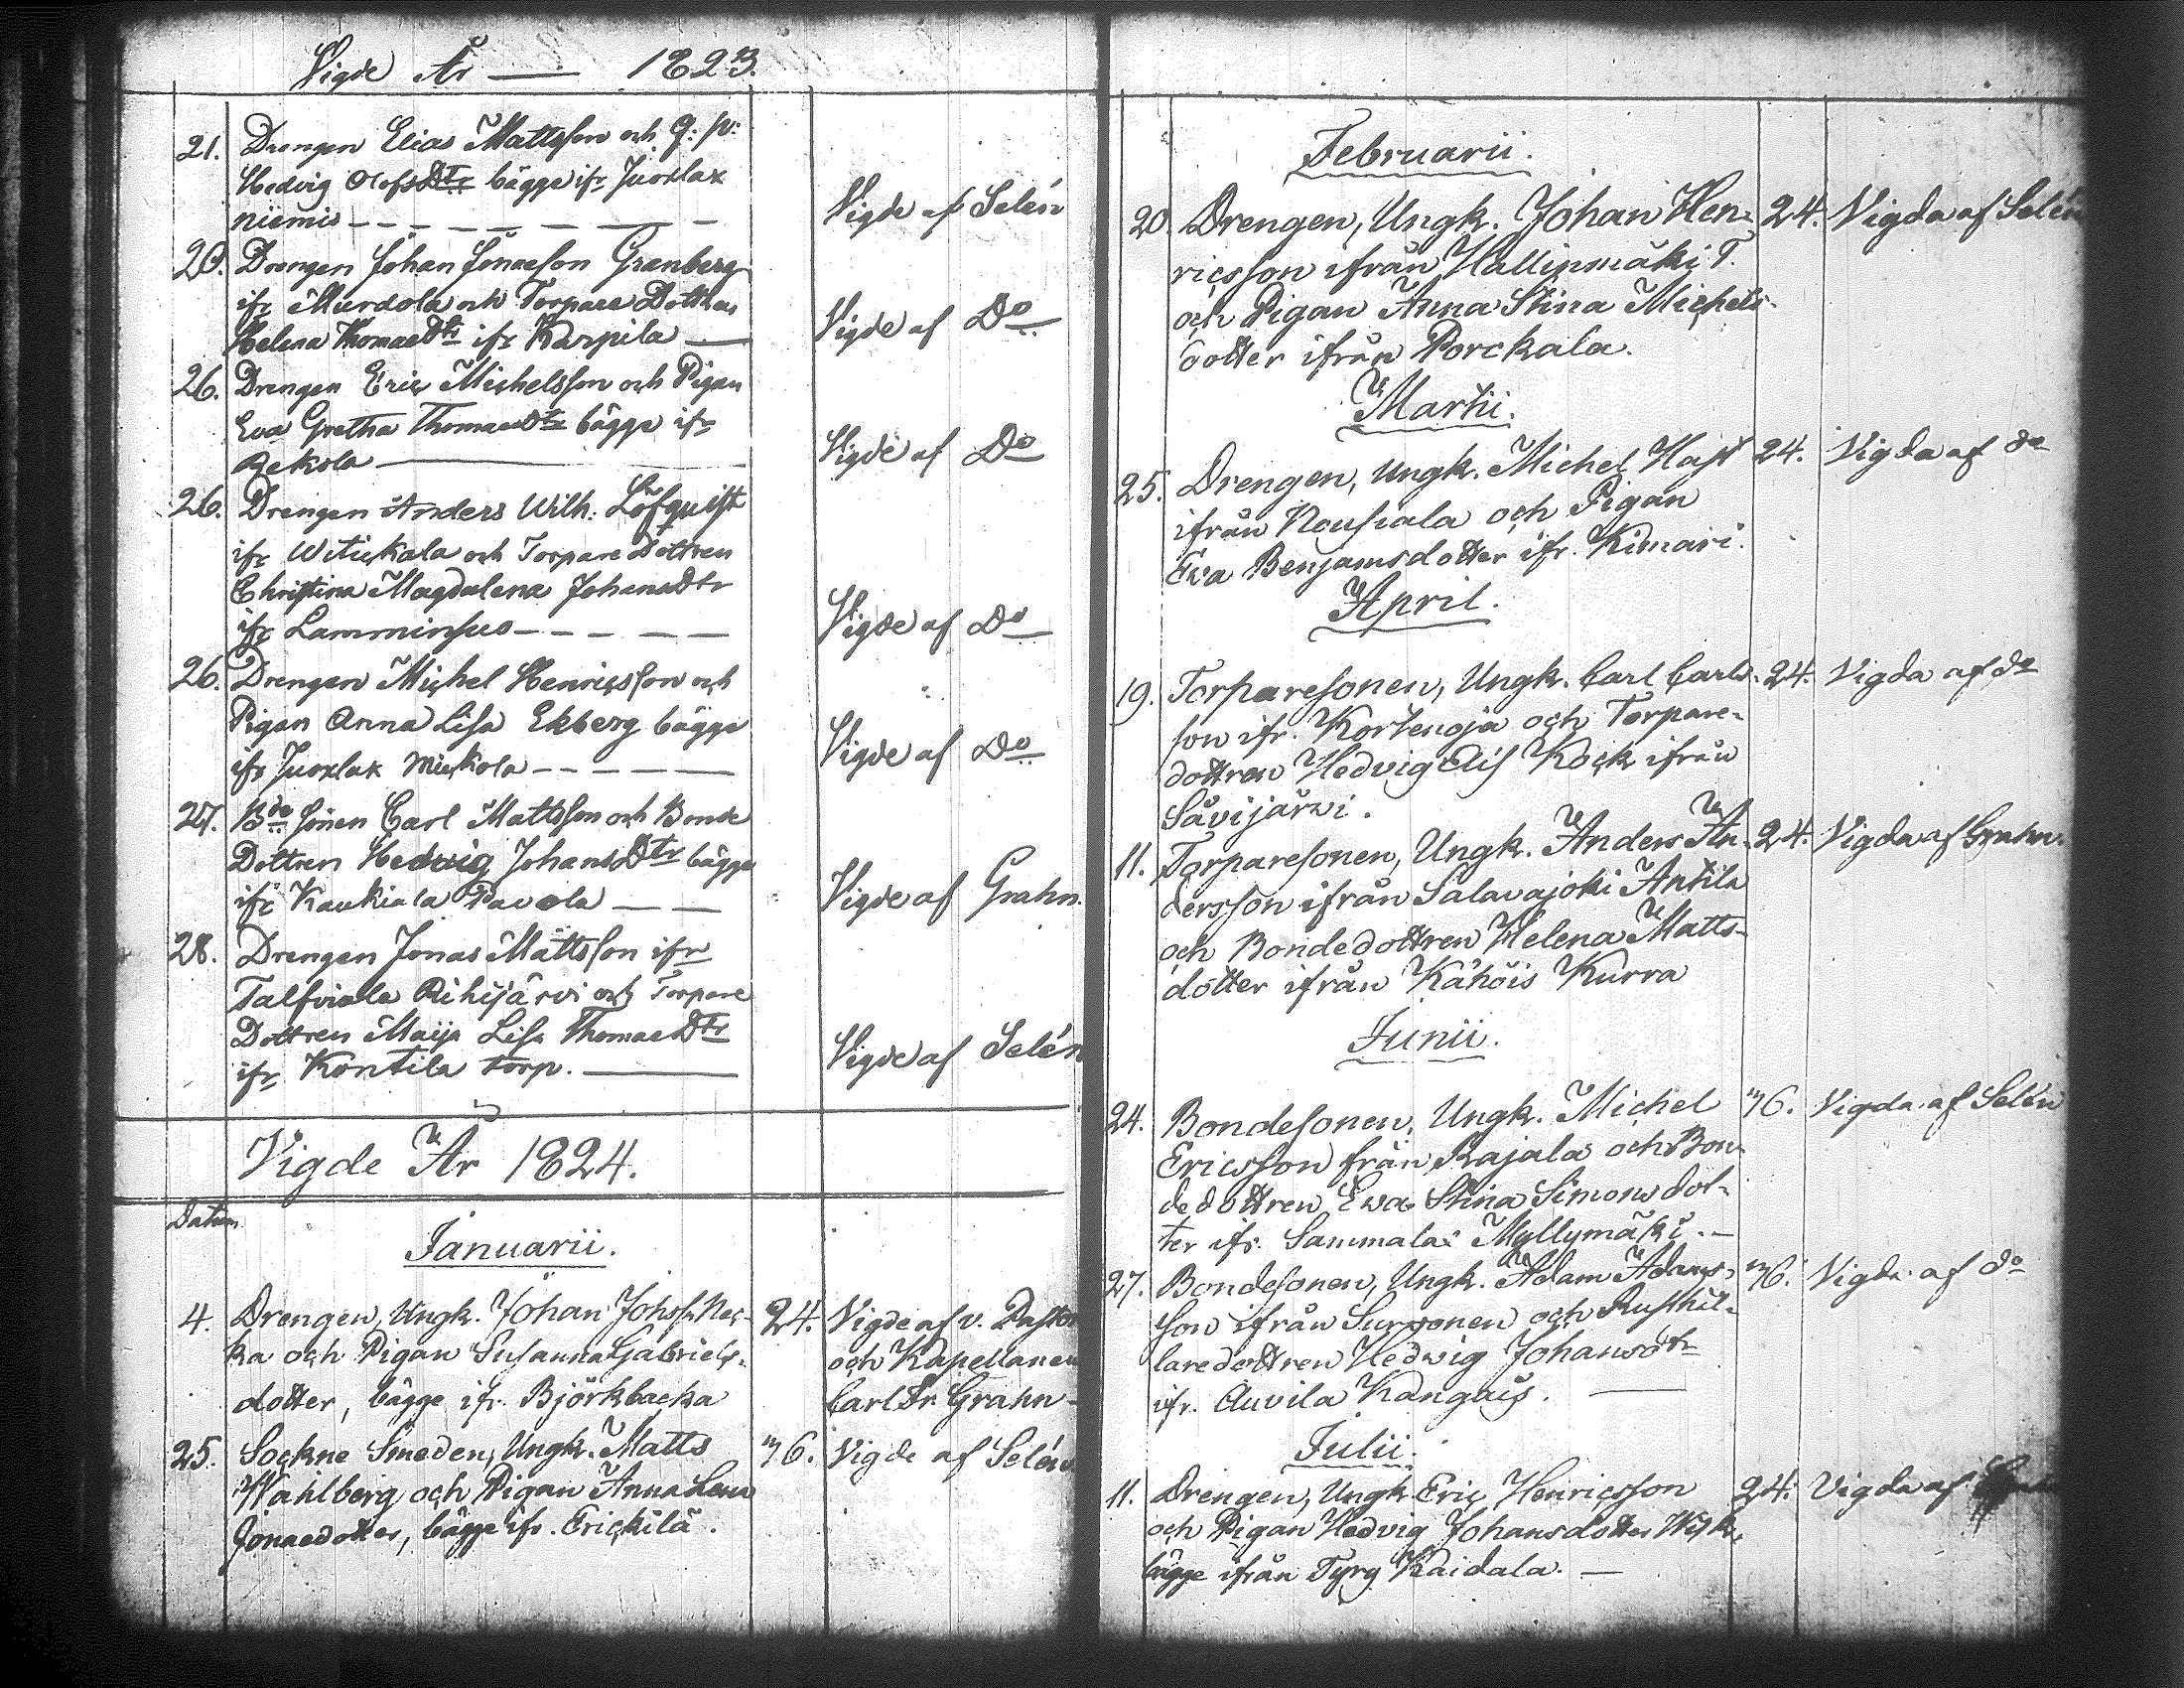 Vigde År — 1823.
21. Drengen Elias Mattsson och q: p:
Hedvig OlofsDtr bägge ifr Juoxlax
niemis — Vigde af Selén
20. Drengen Johan Jonaeson Granberg
ifr Murdola och Torpare Dottren
Helena ThomaeDtr ifr Karpila — Vigde af Do
26. Drengen Eric Michelsson och Pigan
Eva Gretha ThomaeDtr bägge ifr
Rekola — Vigde af Do
26. Drengen Anders Wilh: Löfquist
ifr Witickala och Torpare Dottren
Christina Magdalena JohansDtr
ifr Lamminsuo — Vigde af Do
26. Drengen Michel Henricsson och
Pigan Anna Lisa Ekberg bägge
ifr Juoxlax Mickola — Vigde af Do
27. Bde Sonen Carl Mattsson och Bonde
Dottren Hedwig JohansDtr bägge
ifr Kaukiala Pavola — Vigde af Grahn.
28. Drengen Jonas Mattsson ifr
Talfviala Rihijärvi och Torpare
Dottren Maija Lisa ThomaeDtr
ifr Kontila torp. — Vigde af Selén
Vigde År 1824.
Datum
Januarii.
4. Drengen, Ungk. Johan Johss. Nec- 24. Vigde af v. Pastor
ka och Pigan Susanna Gabriels- och Kapellanen
dotter, bägge ifr. Björkbacka Carl Fr. Grahn -
25. Sockne Smeden, Ungk. Matts 76. Vigde af Selén
Wahlberg och Pigan Anna Lena
Jonaedotter, bägge ifr. Erickilä.
Februarii.
20. Drengen, Ungk. Johan Hen- 24. Vigda af Selén
ricsson ifrån Hallinmäki T.
och Pigan Anna Stina Michels-
dotter ifrån Porckala.
Martii.
25. Drengen, Ungk. Michel Hast 24. Vigda af do
ifrån Nousiala och Pigan
Eva Benjamsdotter ifr. Kimari.
April.
19. Torparesonen, Ungk. Carl Carls- 24. Vigda af do
son ifr. Kortenoja och Torpare-
dottren Hedvig Elis Kock ifrån
Savijärvi.
11. Torparesonen, Ungk. Anders An- 24. Vigda af Grahn.
dersson ifrån Salavajoki Antila
och Bondedottren Helena Matts-
dotter ifrån Kähöis Kurra
Junii.
24. Bondesonen, Ungk. Michel 76. Vigda af Selén
Ericsson från Rajala och Bon-
dedottren Ewa Stina Simonsdot-
ter ifr. Sammala Myllymäki. —
27. Bondesonen, Ungk. Adam Adams- 76. Vigda af do
son ifrån Surjonen och Rusthål-
laredottren Hedwig Johansdtr
ifr. Auvila Kangais. —
Julii.
11. Drengen, Ungk. Eric Henricsson 24. Vigda af
och Pigan Hedvig Johansdotter Wik,
bägge ifrån Tyry Kaidala. —